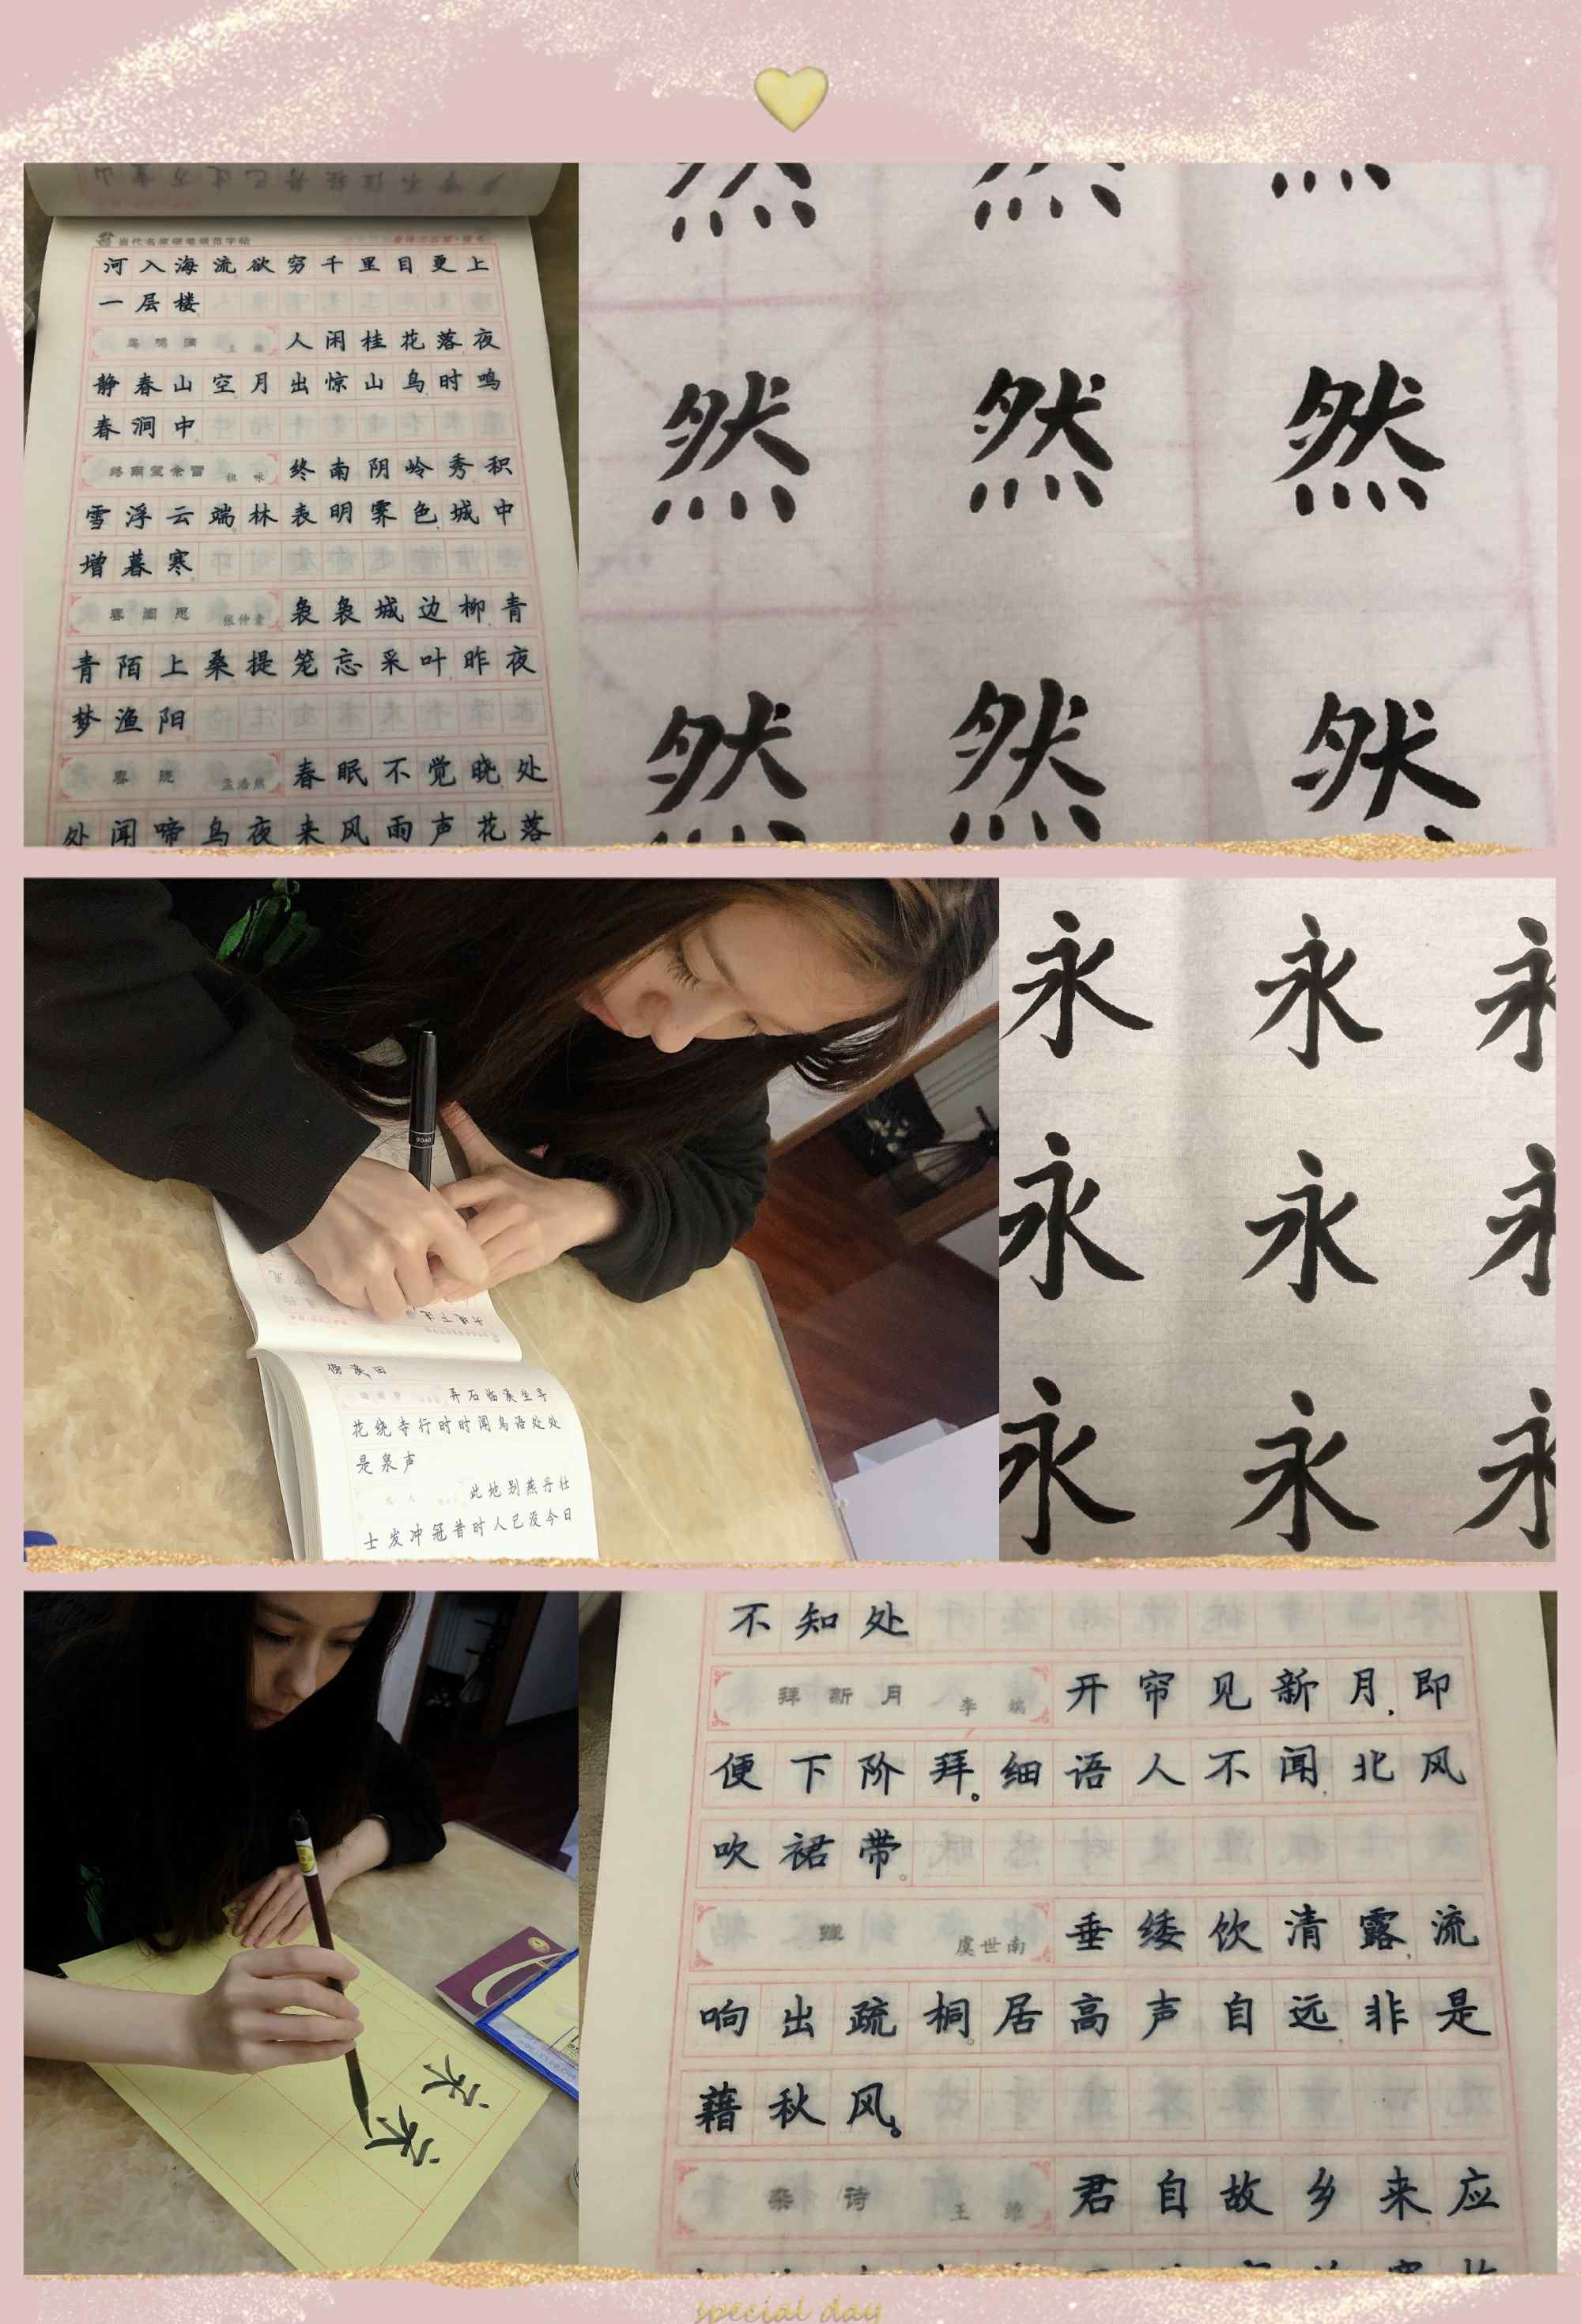 当代名家硬笔规范字帖
河入海流欲穷千里目更上
一层楼
鸟鸣涧 王维 人闲桂花落夜
静春山空月出惊山鸟时鸣
春涧中
终南望余雪 祖咏 终南阴岭秀积
雪浮云端林表明霁色城中
增暮寒
春闺思 张仲素 袅袅城边柳青
青陌上桑提笼忘采叶昨夜
梦渔阳
春晓 孟浩然 春眠不觉晓处
处闻啼鸟夜来风雨声花落
然然然
然然然
然然然
9060
弄石临溪坐寻
花绕寺行时时闻鸟语处处
是泉声
此地别燕丹壮
士发冲冠昔时人已没今日
永永永
永永永
永永永
不知处
拜新月 李端 开帘见新月,即
便下阶拜。细语人不闻,北风
吹裙带。
蝉 虞世南 垂緌饮清露,流
响出疏桐。居高声自远,非是
藉秋风。
杂诗 王维 君自故乡来应
special day